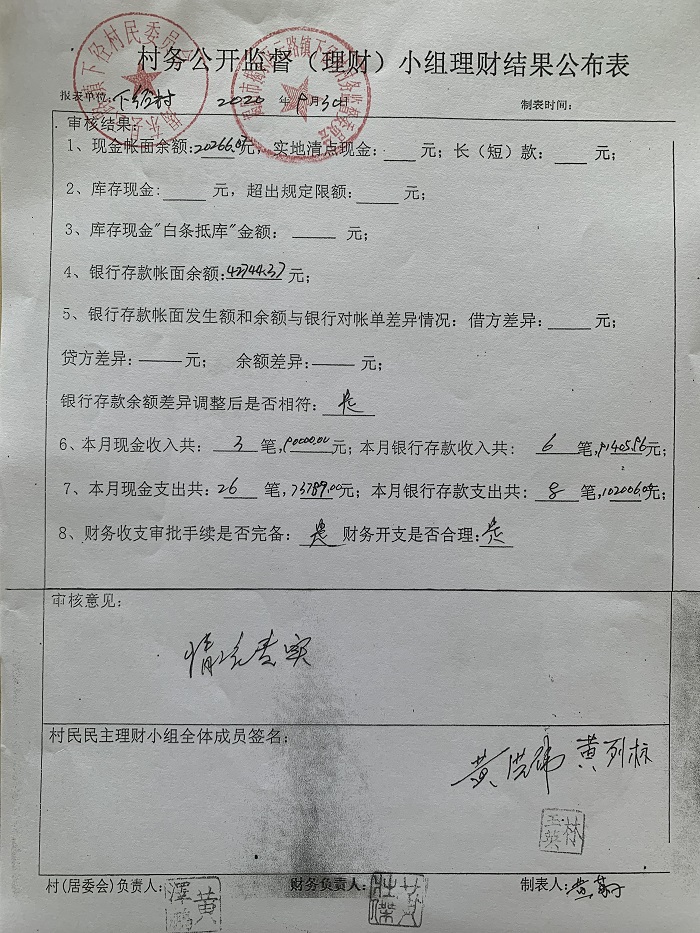 村务公开监督（理财）小组理财结果公布表
报表单位：下径村 2020 年9月30日 制表时间：
审核结果：
1、现金帐面余额：20266.07元，实地清点现金：___ 元；长（短）款：___ 元；
2、库存现金：___ 元，超出规定限额：___ 元；
3、库存现金"白条抵库"金额：___ 元；
4、银行存款帐面余额：42744.37元；
5、银行存款帐面发生额和余额与银行对帐单差异情况：借方差异：___元；
贷方差异：——元； 余额差异：——元；
银行存款余额差异调整后是否相符：是
6、本月现金收入共：3 笔，90000.00元；本月银行存款收入共： 6 笔，91405.86元；
7、本月现金支出共：26 笔，73789.00元；本月银行存款支出共：8 笔，102006.09元；
8、财务收支审批手续是否完备：是 财务开支是否合理：是
审核意见：
情况查实
村民民主理财小组全体成员签名：
黄 黄列标
林玉英
村(居委会)负责人：黄泽鹏 财务负责人：黄 制表人：黄